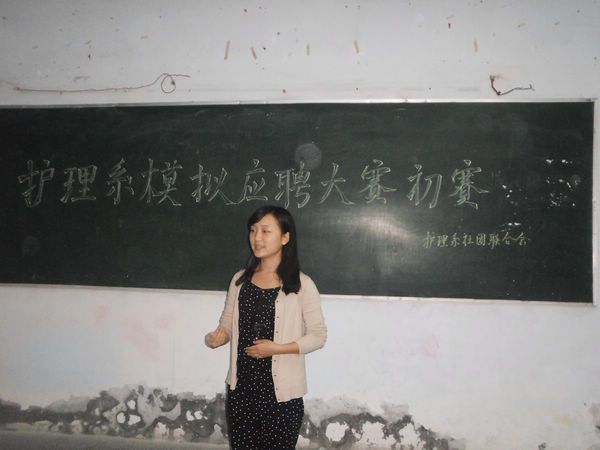 护理系模拟应聘大赛初赛
护理系社团联合会